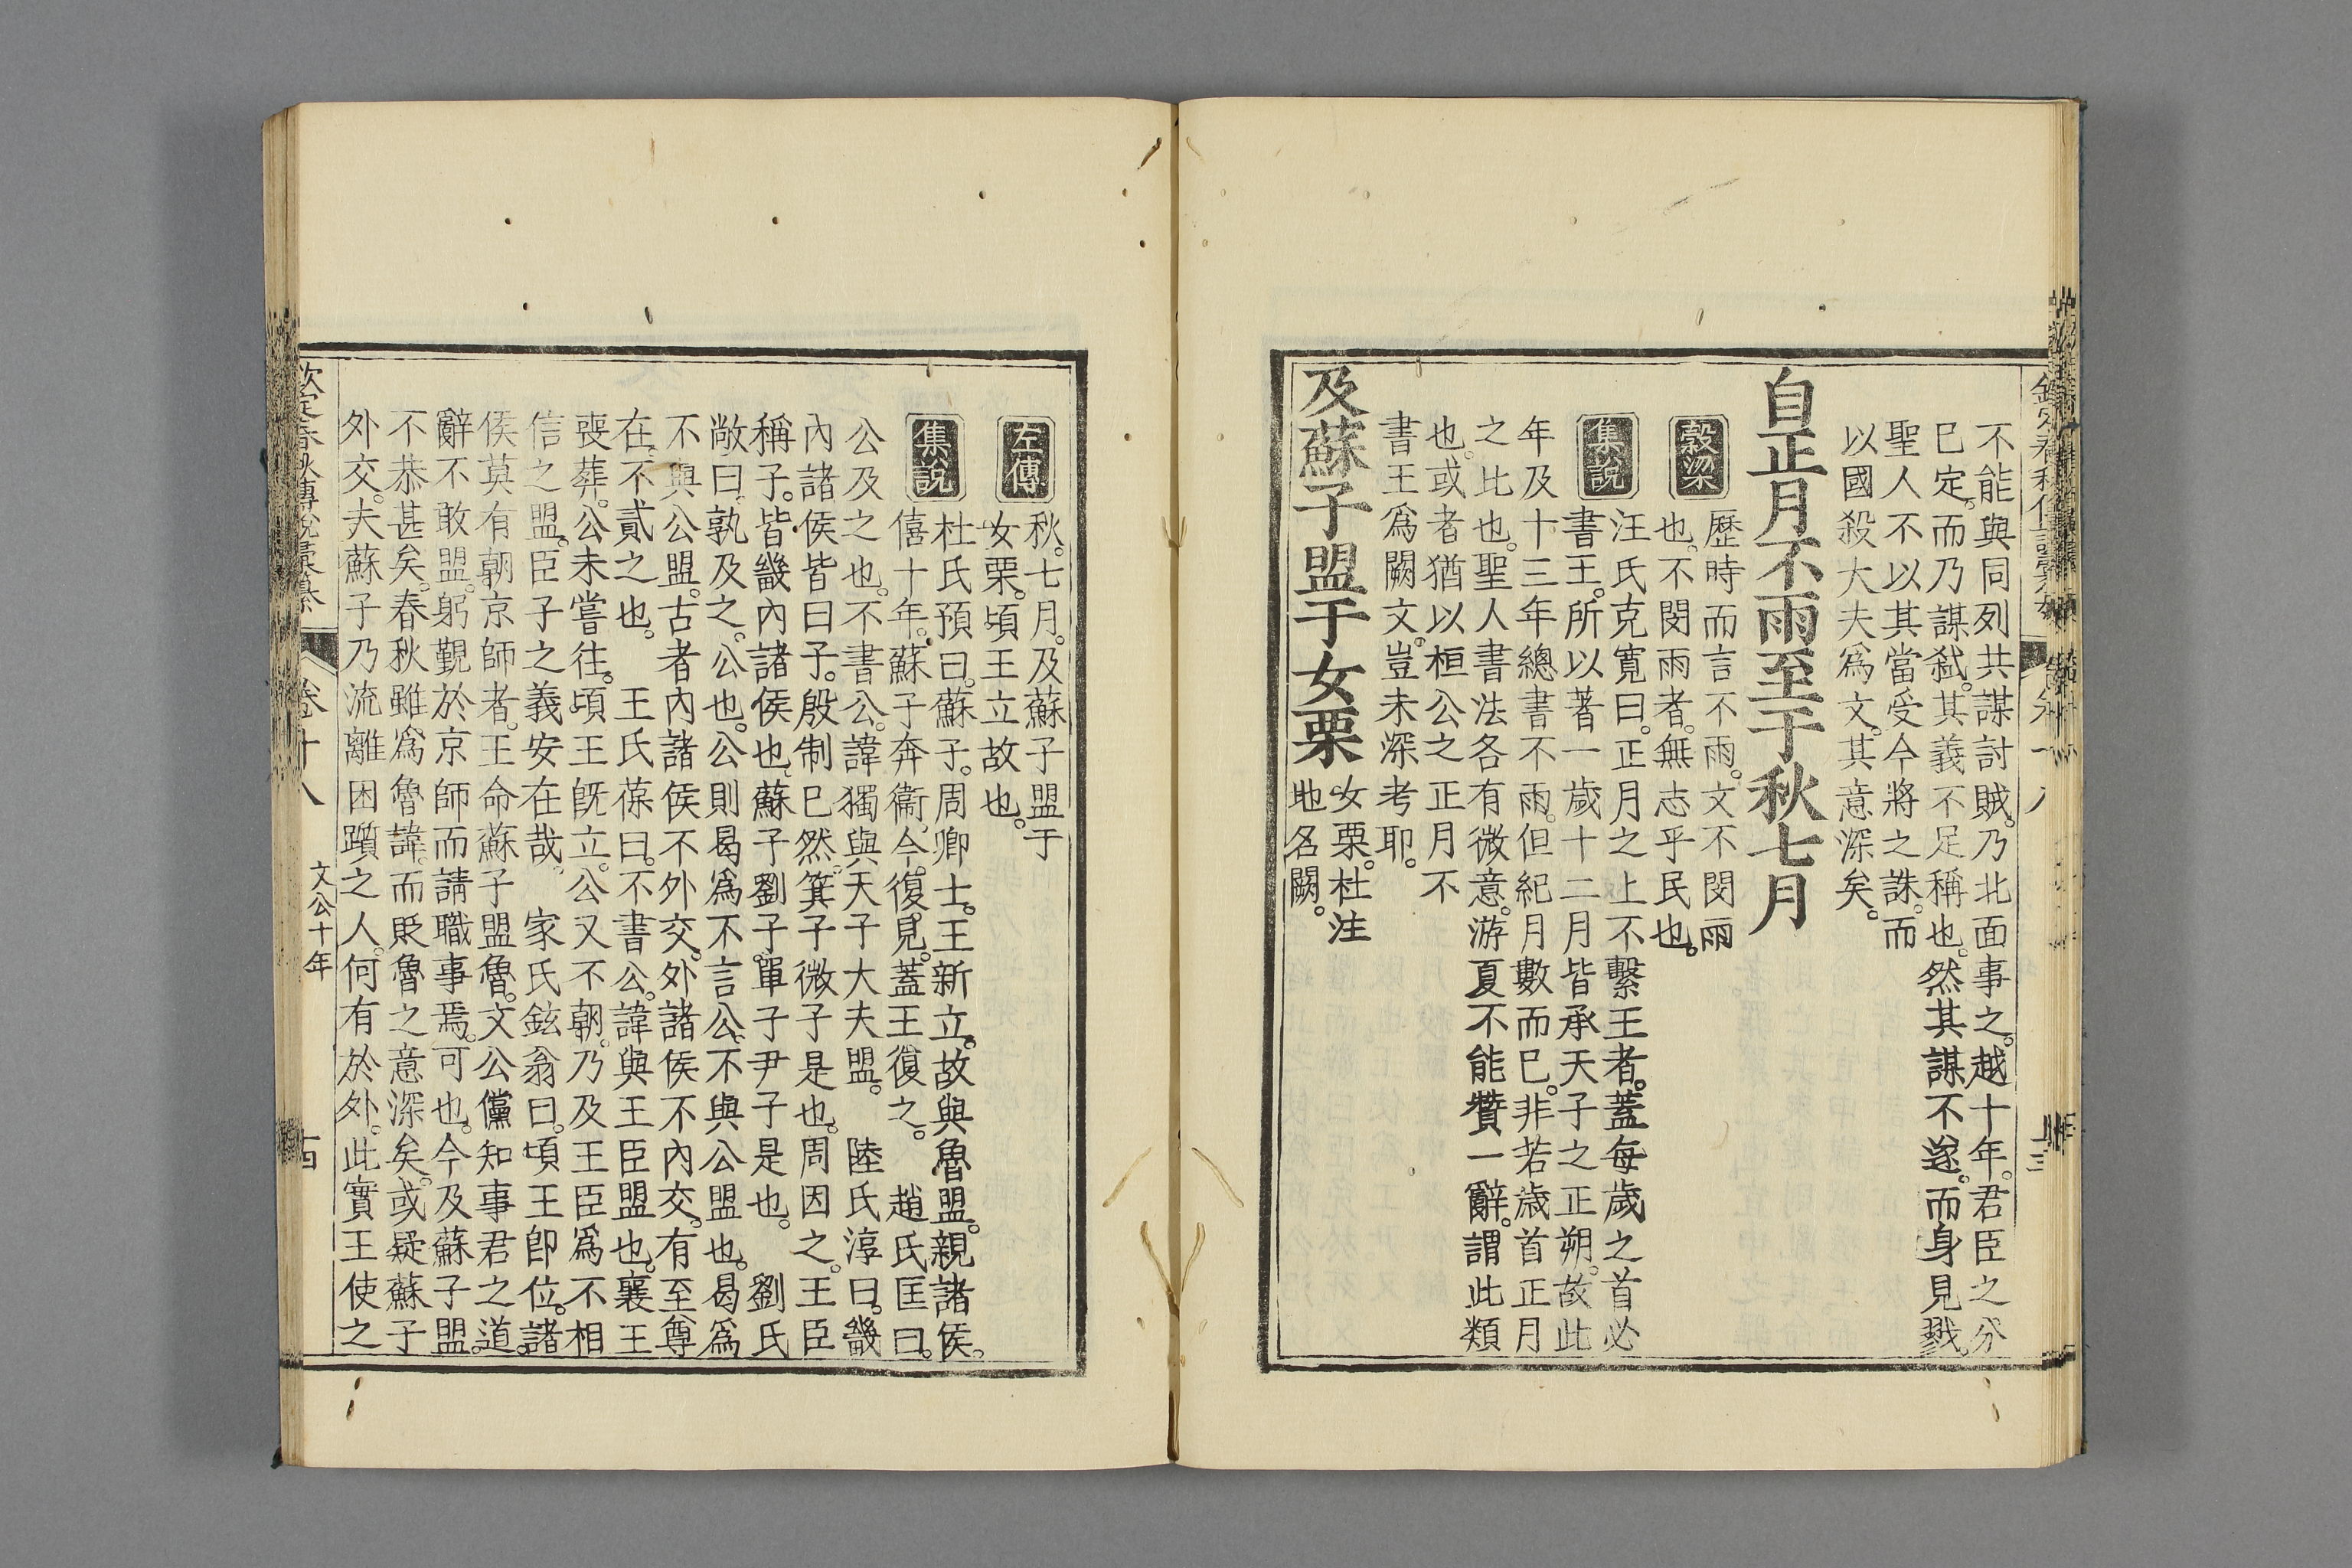 不能與同列共謀討賊。乃北面事之。越十年。君臣之分
已定。而乃謀弑。其義不足稱也。然其謀不遂。而身見戮。
聖人不以其當受今將之誅。而
以國殺大夫爲文。其意深矣。
自正月不雨至于秋七月
穀梁
歷時而言不雨。文不閔雨
也。不閔雨者。無志乎民也。
集說
汪氏克寬曰。正月之上不繫王者。蓋每歲之首必
書王。所以著一歲十二月皆承天子之正朔。故此
年及十三年總書不雨。但紀月數而已。非若歲首正月
之比也。聖人書法各有微意。游夏不能贊一辭。謂此類
也。或者猶以桓公之正月不
書王爲闕文。豈未深考耶。
及蘇子盟于女栗
女栗。杜注
地名闕。
左傳
秋。七月。及蘇子盟于
女栗。頃王立故也。
集說
杜氏預曰。蘇子。周卿士。王新立。故與魯盟。親諸侯。
僖十年。蘇子奔衞。今復見。蓋王復之。 趙氏匡曰。
公及之也。不書公。諱獨與天子大夫盟。 陸氏淳曰。畿
內諸侯皆曰子。殷制已然。箕子微子是也。周因之。王臣
稱子。皆畿內諸侯也。蘇子劉子。單子尹子是也。 劉氏
敞曰。孰及之。公也。公則曷爲不言公。不與公盟也。曷爲
不與公盟。古者內諸侯不外交。外諸侯不內交。有至尊
在。不貳之也。 王氏葆曰。不書公。諱與王臣盟也。襄王
喪葬。公未嘗往。頃王旣立。公又不朝。乃及王臣爲不相
信之盟。臣子之義安在哉。 家氏鉉翁曰。頃王卽位。諸
侯莫有朝京師者。王命蘇子盟魯。文公儻知事君之道。
辭不敢盟。躬覲於京師而請職事焉。可也。今及蘇子盟。
不恭甚矣。春秋雖爲魯諱。而貶魯之意深矣。或疑蘇子
外交。夫蘇子乃流離困躓之人。何有於外。此實王使之
欽定春秋傳說彙纂 卷十八 文公十年 十四